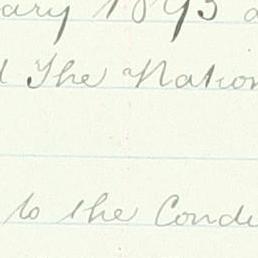 ary 1893 a
d The Nation
to the Condi